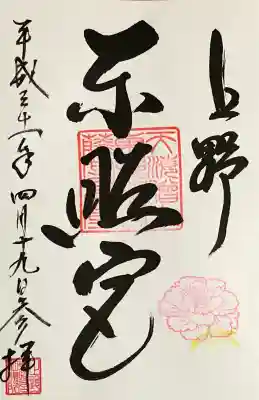 上野
東照宮
平成三十一年四月十九日参拝